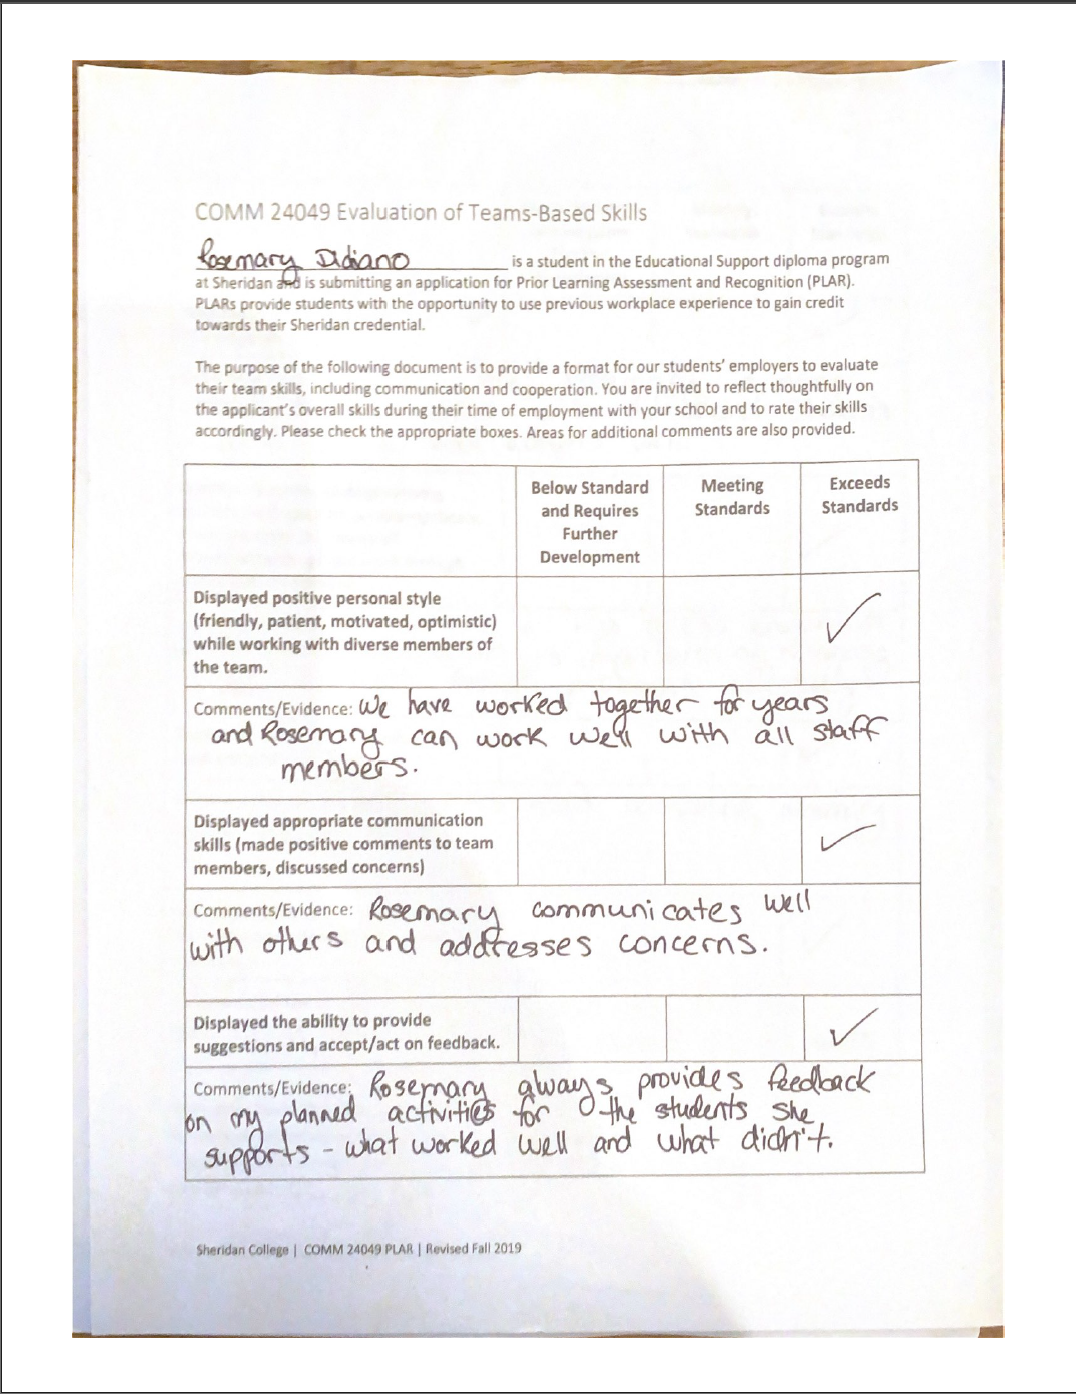 COMM 24049 Evaluation of Teams-Based Skills
Rosemary Didiano is a student in the Educational Support diploma program
at Sheridan and is submitting an application for Prior Learning Assessment and Recognition (PLAR).
PLARs provide students with the opportunity to use previous workplace experience to gain credit
towards their Sheridan credential.
The purpose of the following document is to provide a format for our students' employers to evaluate
their team skills, including communication and cooperation. You are invited to reflect thoughtfully on
the applicant's overall skills during their time of employment with your school and to rate their skills
accordingly. Please check the appropriate boxes. Areas for additional comments are also provided.
Below Standard
and Requires
Further
Development
Meeting
Standards
Exceeds
Standards
Displayed positive personal style
(friendly, patient, motivated, optimistic)
while working with diverse members of
the team.
Comments/Evidence: We have worked together for years
and Rosemary can work well with all staff
members.
Displayed appropriate communication
skills (made positive comments to team
members, discussed concerns)
Comments/Evidence: Rosemary communicates well
with others and addresses concerns.
Displayed the ability to provide
suggestions and accept/act on feedback.
Comments/Evidence: Rosemary always provides feedback
on my planned activities for the students she
supports - what worked well and what didn't.
Sheridan College | COMM 24049 PLAR | Revised Fall 2019